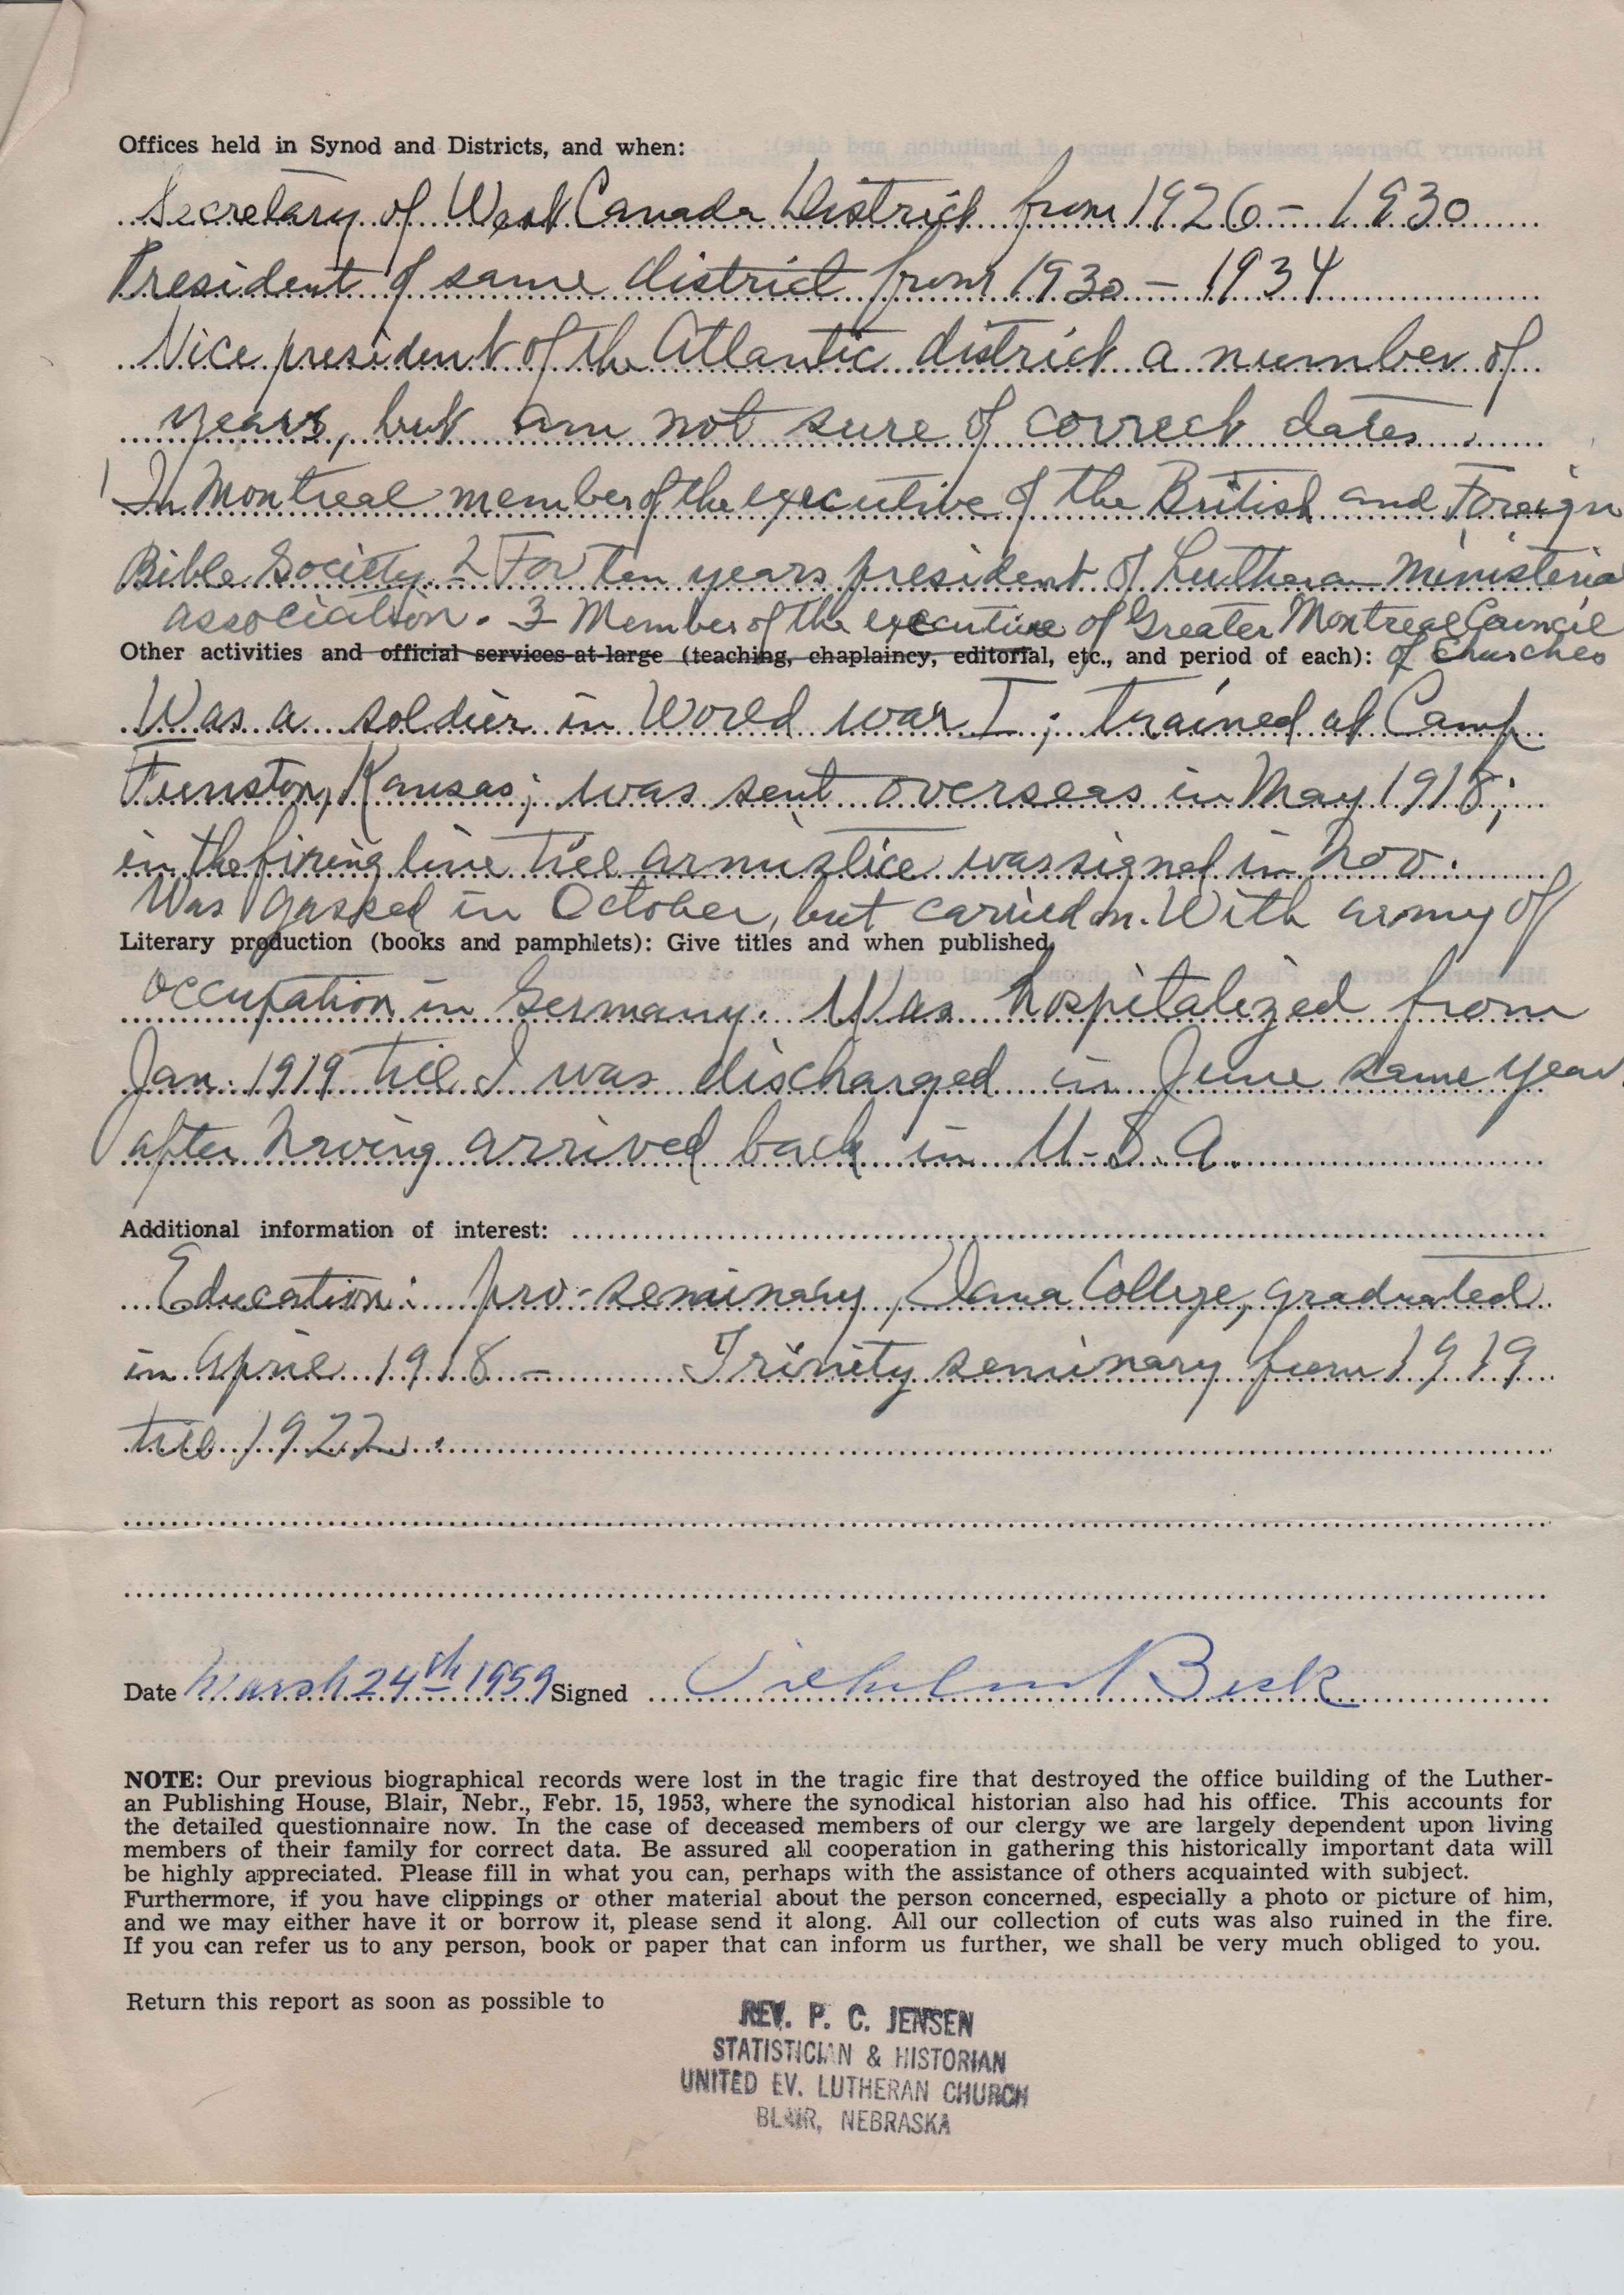 Offices held in Synod and Districts, and when:
Secretary of West Canada District from 1926 - 1930
President of same district from 1930 - 1934
Vice president of the Atlantic district a number of
years, but am not sure of correct dates.
1 In Montreal member of the executive of the British and Foreign
Bible Society. 2 For ten years president of Lutheran Ministerial
association. 3 Member of the executive of Greater Montreal Council
Other activities and official services-at-large (teaching, chaplaincy, editorial, etc., and period of each): of Churches
Was a soldier in World war I; trained at Camp
Funston, Kansas; was sent overseas in May 1918;
in the firing line till armistice was signed in Nov.
Was gassed in October, but carried on. With army of
Literary production (books and pamphlets): Give titles and when published
occupation in Germany. Was hospitalized from
Jan. 1919 till I was discharged in June same year
after having arrived back in U.S.A.
Additional information of interest:
Education: pro-seminary, Dana College, graduated
in April 1918 - Trinity seminary from 1919
till 1922.
Date March 24th 1959 Signed Vilhelm Beck
NOTE: Our previous biographical records were lost in the tragic fire that destroyed the office building of the Luther-
an Publishing House, Blair, Nebr., Febr. 15, 1953, where the synodical historian also had his office. This accounts for
the detailed questionnaire now. In the case of deceased members of our clergy we are largely dependent upon living
members of their family for correct data. Be assured all cooperation in gathering this historically important data will
be highly appreciated. Please fill in what you can, perhaps with the assistance of others acquainted with subject.
Furthermore, if you have clippings or other material about the person concerned, especially a photo or picture of him,
and we may either have it or borrow it, please send it along. All our collection of cuts was also ruined in the fire.
If you can refer us to any person, book or paper that can inform us further, we shall be very much obliged to you.
Return this report as soon as possible to
REV. P. C. JENSEN
STATISTICIAN & HISTORIAN
UNITED EV. LUTHERAN CHURCH
BLAIR, NEBRASKA